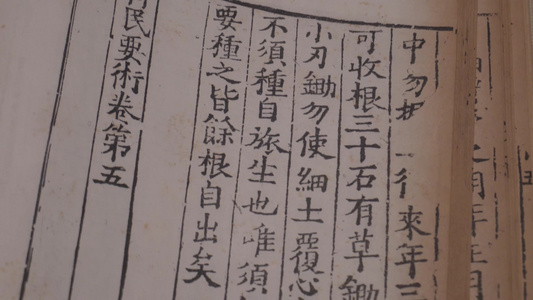 之明年正月
中勿 行來年三
可收根三十石有草鋤
小刃鋤勿使細土覆心
不須種自旅生也唯須
要種之皆餘根自出矣
民要術卷第五